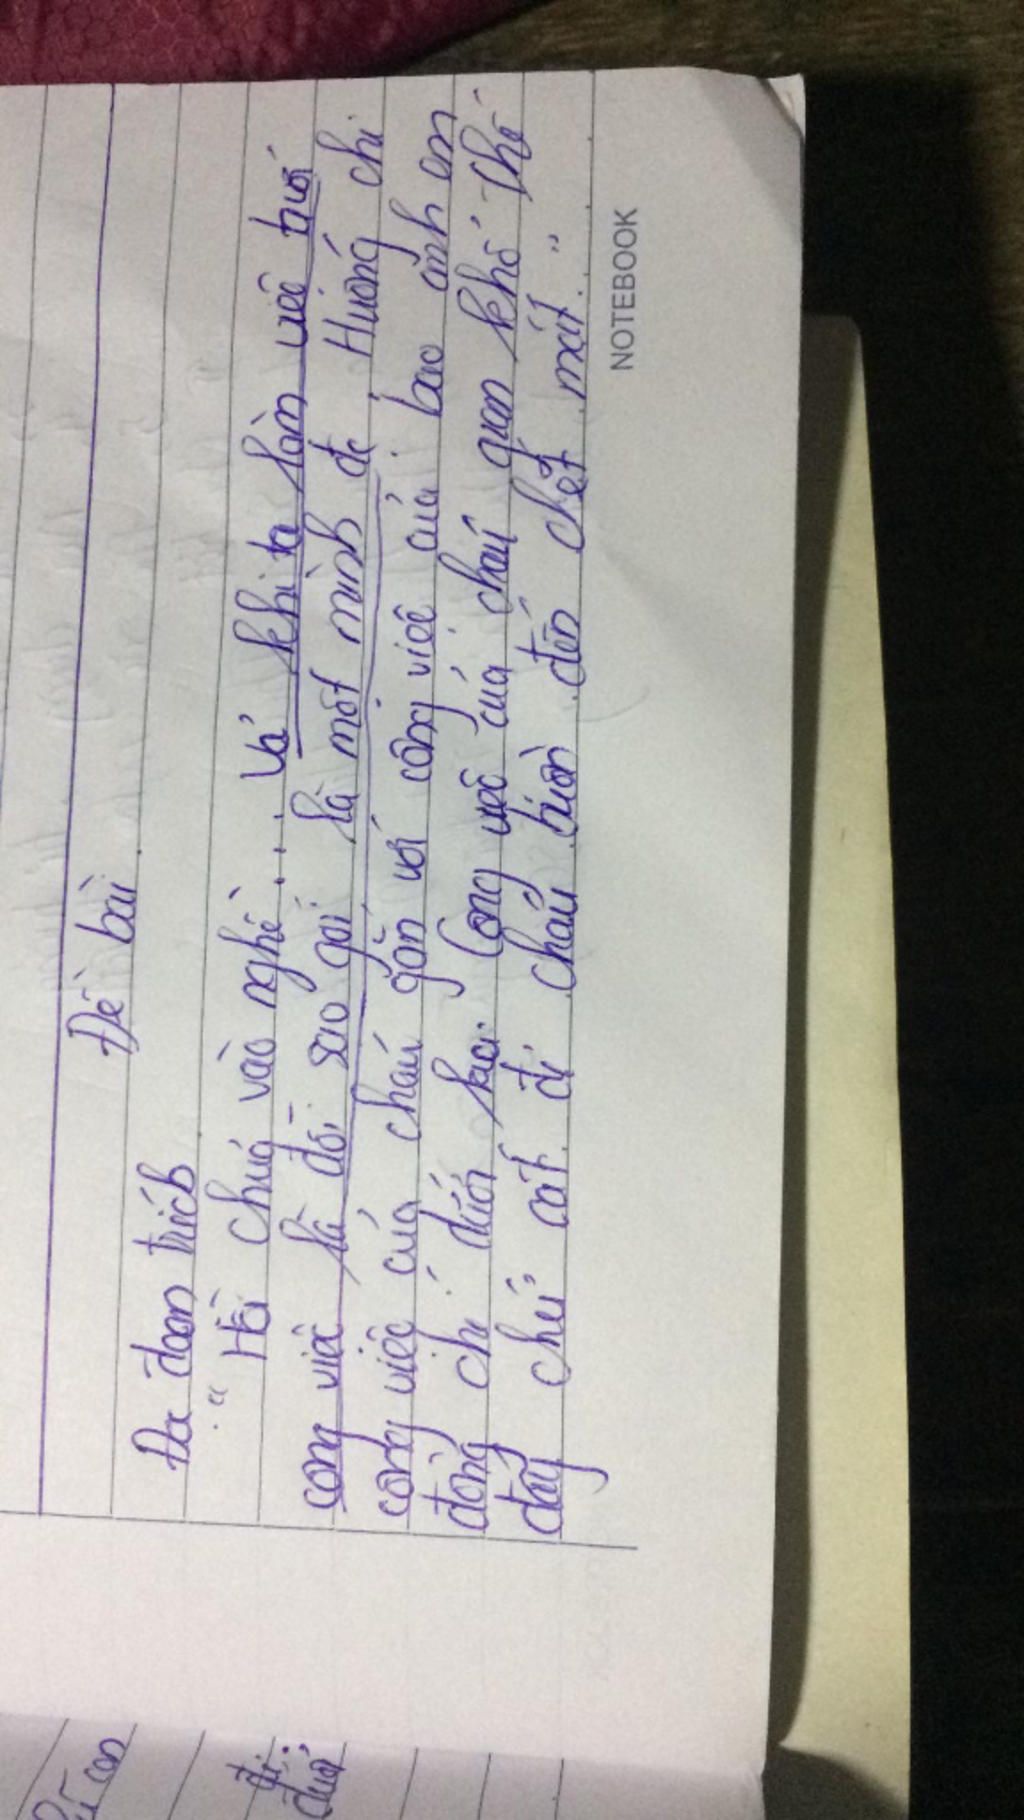 Đề bài
Đọc đoạn trích
"Hồi chưa vào nghề .... Vả khi ta làm việc ta với
công việc là đôi, sao gọi là một mình đc. Huống chi
công việc của cháu gắn với công việc của bao anh em
đồng chí dưới kia. Công việc của cháu gian khổ thế
đấy chứ cất đi cháu buồn đến chết mất."
NOTEBOOK
út con
đi;